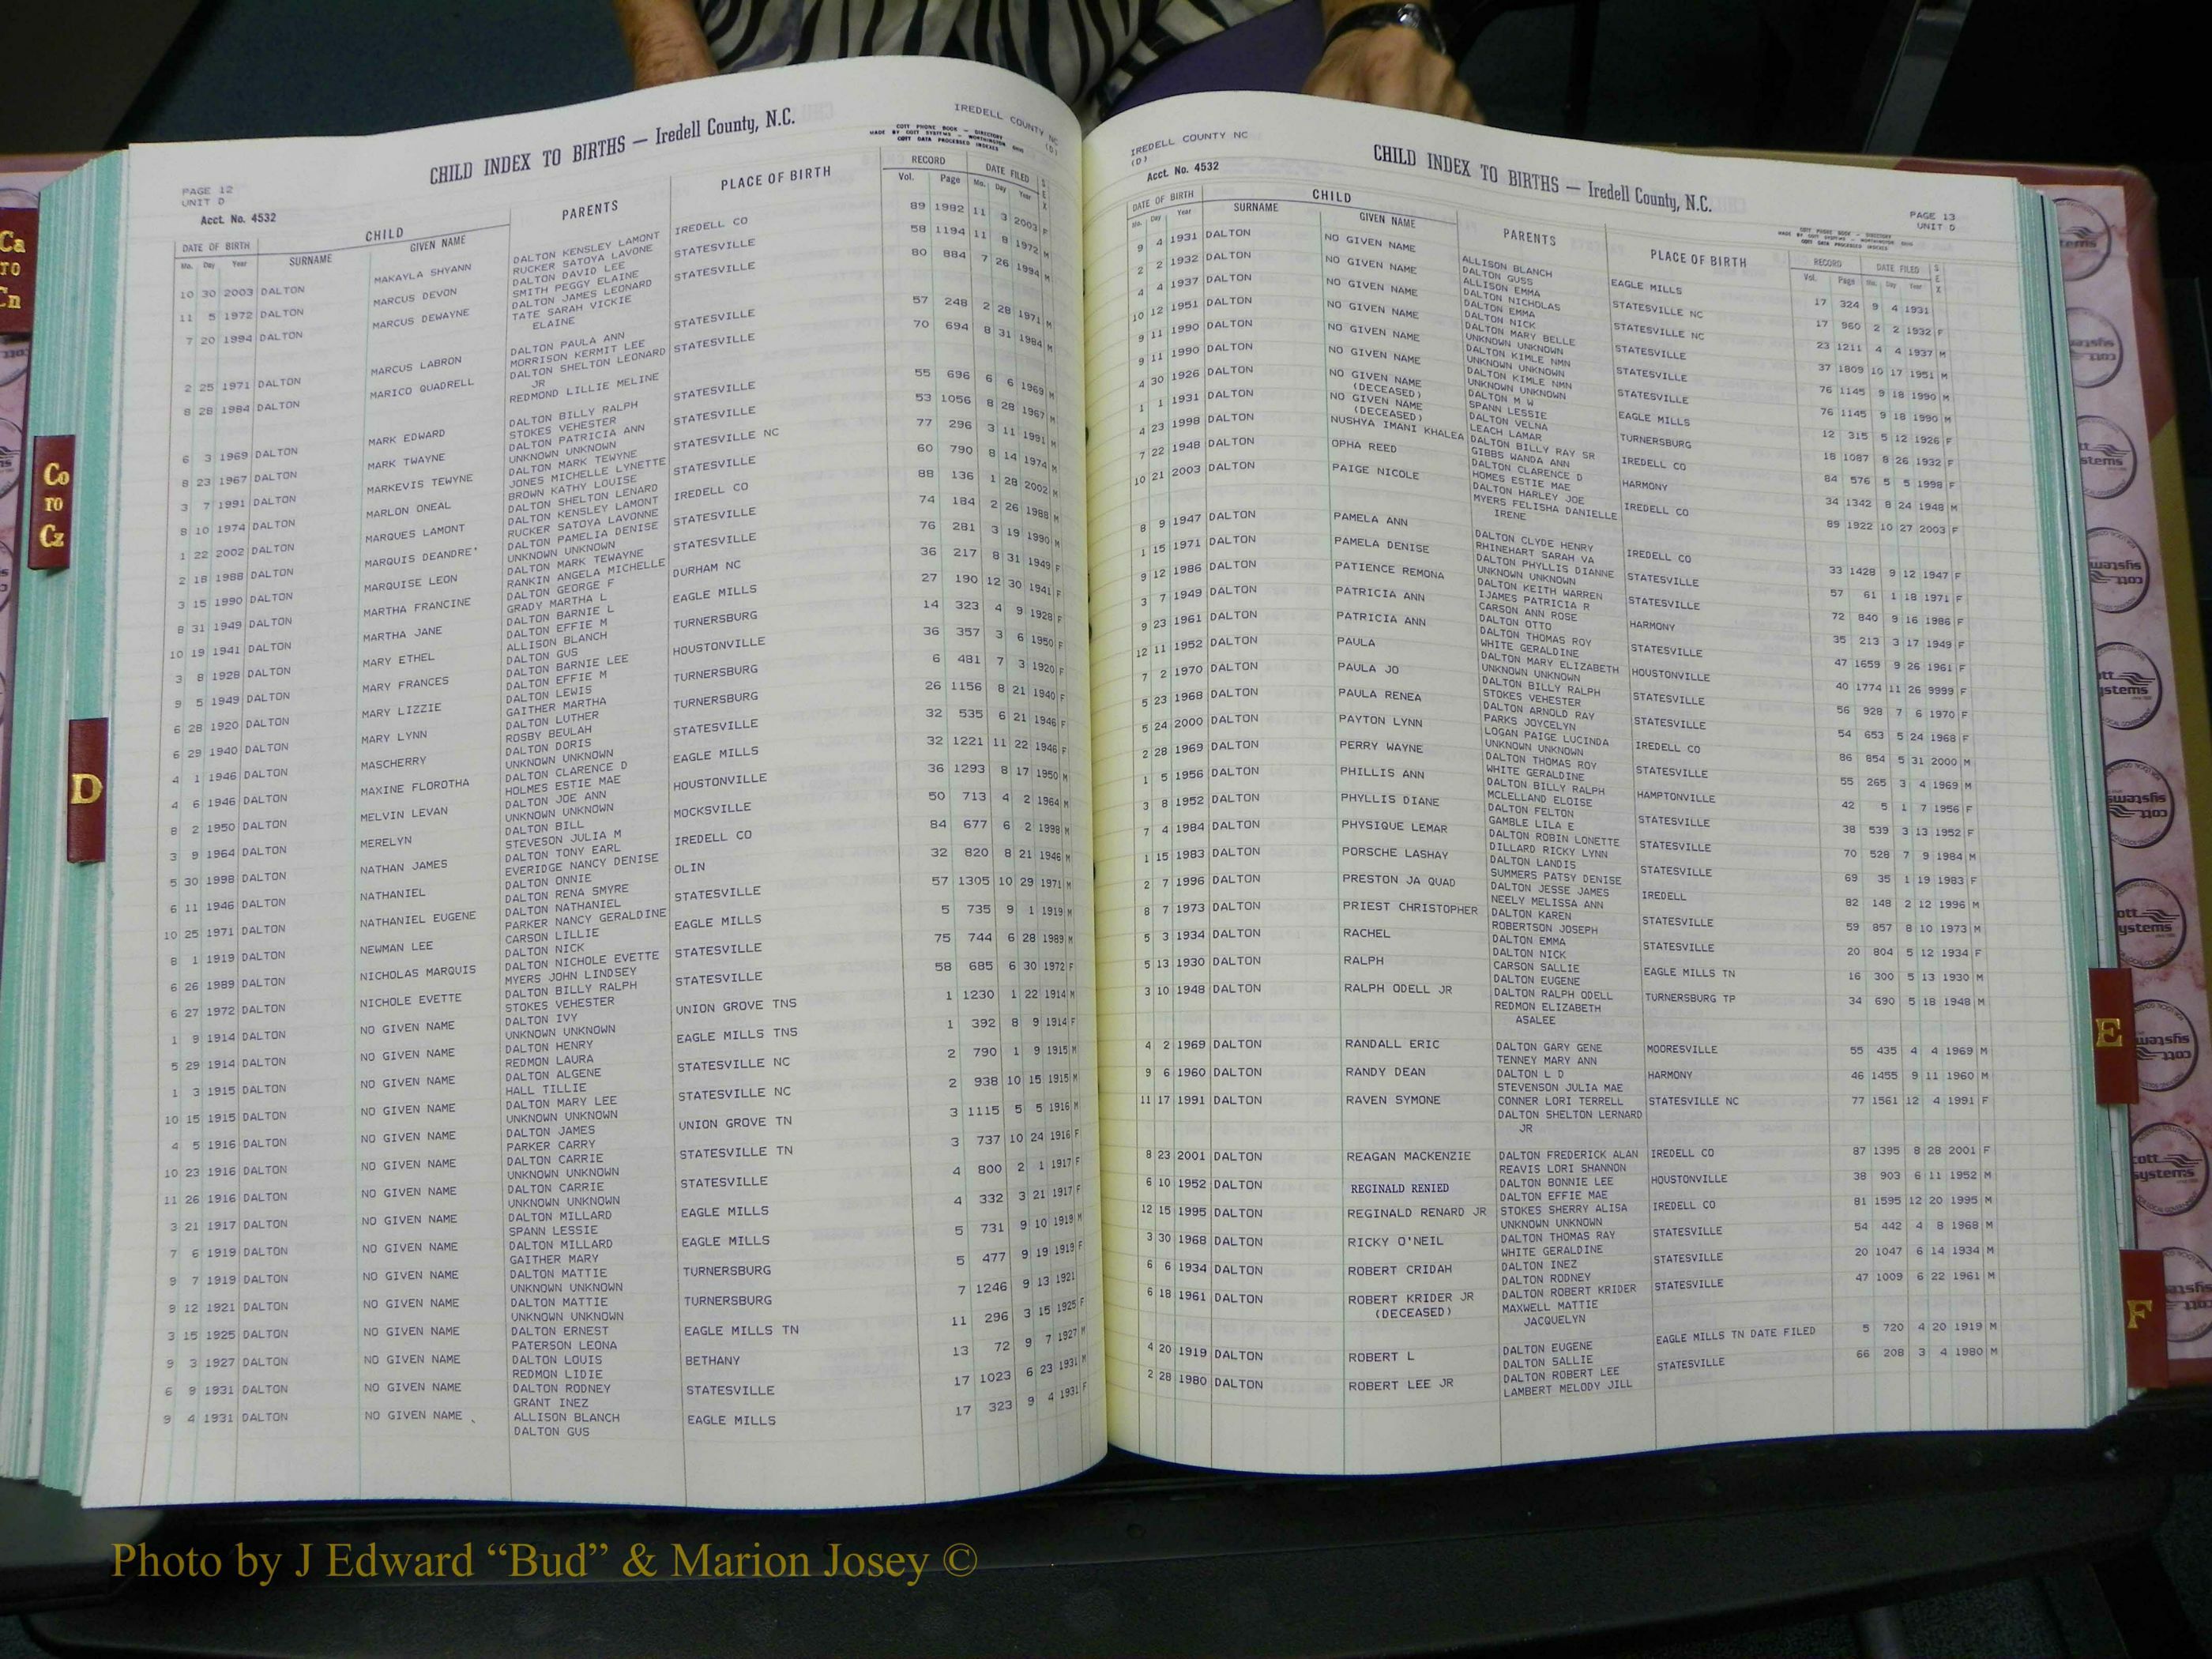 CHILD INDEX TO BIRTHS — Iredell County, N.C.
IREDELL COUNTY NC
(D)
COTT PHONE BOOK - DIRECTORY
MADE BY COTT SYSTEMS - WORTHINGTON OHIO
COTT DATA PROCESSED INDEXES
PAGE 12
UNIT D
Acct. No. 4532
CHILD PARENTS PLACE OF BIRTH RECORD DATE FILED SEX
DATE OF BIRTH SURNAME GIVEN NAME Vol. Page Mo. Day Year
Mo. Day Year
10 30 2003 DALTON MAKAYLA SHYANN DALTON KENSLEY LAMONT IREDELL CO 89 1982 11 3 2003 F
RUCKER SATOYA LAVONE
11 5 1972 DALTON MARCUS DEVON DALTON DAVID LEE STATESVILLE 58 1194 11 8 1972 M
SMITH PEGGY ELAINE
7 20 1994 DALTON MARCUS DEWAYNE DALTON JAMES LEONARD STATESVILLE 80 884 7 26 1994 M
TATE SARAH VICKIE
ELAINE
2 25 1971 DALTON MARCUS LABRON DALTON PAULA ANN STATESVILLE 57 248 2 28 1971 M
MORRISON KERMIT LEE
8 28 1984 DALTON MARICO QUADRELL DALTON SHELTON LEONARD STATESVILLE 70 694 8 31 1984 M
JR
REDMOND LILLIE MELINE
6 3 1969 DALTON MARK EDWARD DALTON BILLY RALPH STATESVILLE 55 696 6 6 1969 M
STOKES VEHESTER
8 23 1967 DALTON MARK TWAYNE DALTON PATRICIA ANN STATESVILLE 53 1056 8 28 1967 M
UNKNOWN UNKNOWN
3 7 1991 DALTON MARKEVIS TEWYNE DALTON MARK TEWYNE STATESVILLE NC 77 296 3 11 1991 M
JONES MICHELLE LYNETTE
8 10 1974 DALTON MARLON ONEAL BROWN KATHY LOUISE STATESVILLE 60 790 8 14 1974 M
DALTON SHELTON LENARD
1 22 2002 DALTON MARQUES LAMONT DALTON KENSLEY LAMONT IREDELL CO 88 136 1 28 2002 M
RUCKER SATOYA LAVONNE
2 18 1988 DALTON MARQUIS DEANDRE' DALTON PAMELIA DENISE STATESVILLE 74 184 2 26 1988 M
UNKNOWN UNKNOWN
3 15 1990 DALTON MARQUISE LEON DALTON MARK TEWAYNE STATESVILLE 76 281 3 19 1990 M
RANKIN ANGELA MICHELLE
8 31 1949 DALTON MARTHA FRANCINE DALTON GEORGE F DURHAM NC 36 217 8 31 1949 F
GRADY MARTHA L
10 19 1941 DALTON MARTHA JANE DALTON BARNIE L EAGLE MILLS 27 190 12 30 1941 F
DALTON EFFIE M
3 8 1928 DALTON MARY ETHEL ALLISON BLANCH TURNERSBURG 14 323 4 9 1928 F
DALTON GUS
9 5 1949 DALTON MARY FRANCES DALTON BARNIE LEE HOUSTONVILLE 36 357 3 6 1950 F
DALTON EFFIE M
6 28 1920 DALTON MARY LIZZIE DALTON LEWIS TURNERSBURG 6 481 7 3 1920 F
GAITHER MARTHA
6 29 1940 DALTON MARY LYNN DALTON LUTHER TURNERSBURG 26 1156 8 21 1940 F
ROSBY BEULAH
4 1 1946 DALTON MASCHERRY DALTON DORIS STATESVILLE 32 535 6 21 1946 F
UNKNOWN UNKNOWN
4 6 1946 DALTON MAXINE FLOROTHA DALTON CLARENCE D EAGLE MILLS 32 1221 11 22 1946 F
HOLMES ESTIE MAE
8 2 1950 DALTON MELVIN LEVAN DALTON JOE ANN HOUSTONVILLE 36 1293 8 17 1950 M
UNKNOWN UNKNOWN
3 9 1964 DALTON MERELYN DALTON BILL MOCKSVILLE 50 713 4 2 1964 M
STEVESON JULIA M
5 30 1998 DALTON NATHAN JAMES DALTON TONY EARL IREDELL CO 84 677 6 2 1998 M
EVERIDGE NANCY DENISE
6 11 1946 DALTON NATHANIEL DALTON ONNIE OLIN 32 820 8 21 1946 M
DALTON RENA SMYRE
10 25 1971 DALTON NATHANIEL EUGENE DALTON NATHANIEL STATESVILLE 57 1305 10 29 1971 M
PARKER NANCY GERALDINE
8 1 1919 DALTON NEWMAN LEE CARSON LILLIE EAGLE MILLS 5 735 9 1 1919 M
DALTON NICK
6 26 1989 DALTON NICHOLAS MARQUIS DALTON NICHOLE EVETTE STATESVILLE 75 744 6 28 1989 M
MYERS JOHN LINDSEY
6 27 1972 DALTON NICHOLE EVETTE DALTON BILLY RALPH STATESVILLE 58 685 6 30 1972 F
STOKES VEHESTER
1 9 1914 DALTON NO GIVEN NAME DALTON IVY UNION GROVE TNS 1 1230 1 22 1914 M
UNKNOWN UNKNOWN
5 29 1914 DALTON NO GIVEN NAME DALTON HENRY EAGLE MILLS TNS 1 392 8 9 1914 F
REDMON LAURA
1 3 1915 DALTON NO GIVEN NAME DALTON ALGENE STATESVILLE NC 2 790 1 9 1915 M
HALL TILLIE
10 15 1915 DALTON NO GIVEN NAME DALTON MARY LEE STATESVILLE NC 2 938 10 15 1915 M
UNKNOWN UNKNOWN
4 5 1916 DALTON NO GIVEN NAME DALTON JAMES UNION GROVE TN 3 1115 5 5 1916 M
PARKER CARRY
10 23 1916 DALTON NO GIVEN NAME DALTON CARRIE STATESVILLE TN 3 737 10 24 1916 F
UNKNOWN UNKNOWN
11 26 1916 DALTON NO GIVEN NAME DALTON CARRIE STATESVILLE 4 800 2 1 1917 F
UNKNOWN UNKNOWN
3 21 1917 DALTON NO GIVEN NAME DALTON MILLARD EAGLE MILLS 4 332 3 21 1917 F
SPANN LESSIE
7 6 1919 DALTON NO GIVEN NAME DALTON MILLARD EAGLE MILLS 5 731 9 10 1919 M
GAITHER MARY
9 7 1919 DALTON NO GIVEN NAME DALTON MATTIE TURNERSBURG 5 477 9 19 1919 F
UNKNOWN UNKNOWN
9 12 1921 DALTON NO GIVEN NAME DALTON MATTIE TURNERSBURG 7 1246 9 13 1921
UNKNOWN UNKNOWN
3 15 1925 DALTON NO GIVEN NAME DALTON ERNEST EAGLE MILLS TN 11 296 3 15 1925 F
PATERSON LEONA
9 3 1927 DALTON NO GIVEN NAME DALTON LOUIS BETHANY 13 72 9 7 1927 M
REDMON LIDIE
6 9 1931 DALTON NO GIVEN NAME DALTON RODNEY STATESVILLE 17 1023 6 23 1931 M
GRANT INEZ
9 4 1931 DALTON NO GIVEN NAME ALLISON BLANCH EAGLE MILLS 17 323 9 4 1931 F
DALTON GUS
IREDELL COUNTY NC
(D)
Acct. No. 4532
CHILD INDEX TO BIRTHS — Iredell County, N.C.
PAGE 13
UNIT D
COTT PHONE BOOK - DIRECTORY
MADE BY COTT SYSTEMS - WORTHINGTON OHIO
COTT DATA PROCESSED INDEXES
DATE OF BIRTH CHILD PARENTS PLACE OF BIRTH RECORD DATE FILED SEX
Mo. Day Year SURNAME GIVEN NAME Vol. Page Mo. Day Year
9 4 1931 DALTON NO GIVEN NAME ALLISON BLANCH EAGLE MILLS 17 324 9 4 1931
DALTON GUSS
2 2 1932 DALTON NO GIVEN NAME ALLISON EMMA STATESVILLE NC 17 960 2 2 1932 F
DALTON NICHOLAS
4 4 1937 DALTON NO GIVEN NAME DALTON EMMA STATESVILLE NC 23 1211 4 4 1937 M
DALTON NICK
10 12 1951 DALTON NO GIVEN NAME DALTON MARY BELLE STATESVILLE 37 1809 10 17 1951 M
UNKNOWN UNKNOWN
9 11 1990 DALTON NO GIVEN NAME DALTON KIMLE NMN STATESVILLE 76 1145 9 18 1990 M
UNKNOWN UNKNOWN
9 11 1990 DALTON NO GIVEN NAME DALTON KIMLE NMN STATESVILLE 76 1145 9 18 1990 M
UNKNOWN UNKNOWN
4 30 1926 DALTON NO GIVEN NAME DALTON M W EAGLE MILLS 12 315 5 12 1926 F
(DECEASED) SPANN LESSIE
1 1 1931 DALTON NO GIVEN NAME DALTON VELNA TURNERSBURG 18 1087 8 26 1932 F
(DECEASED) LEACH LAMAR
4 23 1998 DALTON NUSHYA IMANI KHALEA DALTON BILLY RAY SR IREDELL CO 84 576 5 5 1998 F
GIBBS WANDA ANN
7 22 1948 DALTON OPHA REED DALTON CLARENCE D HARMONY 34 1342 8 24 1948 M
HOMES ESTIE MAE
10 21 2003 DALTON PAIGE NICOLE DALTON HARLEY JOE IREDELL CO 89 1922 10 27 2003 F
MYERS FELISHA DANIELLE
IRENE
8 9 1947 DALTON PAMELA ANN DALTON CLYDE HENRY IREDELL CO 33 1428 9 12 1947 F
RHINEHART SARAH VA
1 15 1971 DALTON PAMELA DENISE DALTON PHYLLIS DIANNE STATESVILLE 57 61 1 18 1971 F
UNKNOWN UNKNOWN
9 12 1986 DALTON PATIENCE REMONA DALTON KEITH WARREN STATESVILLE 72 840 9 16 1986 F
IJAMES PATRICIA R
3 7 1949 DALTON PATRICIA ANN CARSON ANN ROSE HARMONY 35 213 3 17 1949 F
DALTON OTTO
9 23 1961 DALTON PATRICIA ANN DALTON THOMAS ROY STATESVILLE 47 1659 9 26 1961 F
WHITE GERALDINE
12 11 1952 DALTON PAULA DALTON MARY ELIZABETH HOUSTONVILLE 40 1774 11 26 9999 F
UNKNOWN UNKNOWN
7 2 1970 DALTON PAULA JO DALTON BILLY RALPH STATESVILLE 56 928 7 6 1970 F
STOKES VEHESTER
5 23 1968 DALTON PAULA RENEA DALTON ARNOLD RAY STATESVILLE 54 653 5 24 1968 F
PARKS JOYCELYN
5 24 2000 DALTON PAYTON LYNN LOGAN PAIGE LUCINDA IREDELL CO 86 854 5 31 2000 M
UNKNOWN UNKNOWN
2 28 1969 DALTON PERRY WAYNE DALTON THOMAS ROY STATESVILLE 55 265 3 4 1969 M
WHITE GERALDINE
1 5 1956 DALTON PHILLIS ANN DALTON BILLY RALPH HAMPTONVILLE 42 5 1 7 1956 F
MCLELLAND ELOISE
3 8 1952 DALTON PHYLLIS DIANE DALTON FELTON STATESVILLE 38 539 3 13 1952 F
GAMBLE LILA E
7 4 1984 DALTON PHYSIQUE LEMAR DALTON ROBIN LONETTE STATESVILLE 70 528 7 9 1984 M
DILLARD RICKY LYNN
1 15 1983 DALTON PORSCHE LASHAY DALTON LANDIS STATESVILLE 69 35 1 19 1983 F
SUMMERS PATSY DENISE
2 7 1996 DALTON PRESTON JA QUAD DALTON JESSE JAMES IREDELL 82 148 2 12 1996 M
NEELY MELISSA ANN
8 7 1973 DALTON PRIEST CHRISTOPHER DALTON KAREN STATESVILLE 59 857 8 10 1973 M
ROBERTSON JOSEPH
5 3 1934 DALTON RACHEL DALTON EMMA STATESVILLE 20 804 5 12 1934 F
DALTON NICK
5 13 1930 DALTON RALPH CARSON SALLIE EAGLE MILLS TN 16 300 5 13 1930 M
DALTON EUGENE
3 10 1948 DALTON RALPH ODELL JR DALTON RALPH ODELL TURNERSBURG TP 34 690 5 18 1948 M
REDMON ELIZABETH
ASALEE
4 2 1969 DALTON RANDALL ERIC DALTON GARY GENE MOORESVILLE 55 435 4 4 1969 M
TENNEY MARY ANN
9 6 1960 DALTON RANDY DEAN DALTON L D HARMONY 46 1455 9 11 1960 M
STEVENSON JULIA MAE
11 17 1991 DALTON RAVEN SYMONE CONNER LORI TERRELL STATESVILLE NC 77 1561 12 4 1991 F
DALTON SHELTON LERNARD
JR
8 23 2001 DALTON REAGAN MACKENZIE DALTON FREDERICK ALAN IREDELL CO 87 1395 8 28 2001 F
REAVIS LORI SHANNON
6 10 1952 DALTON REGINALD RENIED DALTON BONNIE LEE HOUSTONVILLE 38 903 6 11 1952 M
DALTON EFFIE MAE
12 15 1995 DALTON REGINALD RENARD JR STOKES SHERRY ALISA IREDELL CO 81 1595 12 20 1995 M
UNKNOWN UNKNOWN
3 30 1968 DALTON RICKY O'NEIL DALTON THOMAS RAY STATESVILLE 54 442 4 8 1968 M
WHITE GERALDINE
6 6 1934 DALTON ROBERT CRIDAH DALTON INEZ STATESVILLE 20 1047 6 14 1934 M
DALTON RODNEY
6 18 1961 DALTON ROBERT KRIDER JR DALTON ROBERT KRIDER STATESVILLE 47 1009 6 22 1961 M
(DECEASED) MAXWELL MATTIE
JACQUELYN
4 20 1919 DALTON ROBERT L DALTON EUGENE EAGLE MILLS TN DATE FILED 5 720 4 20 1919 M
DALTON SALLIE
2 28 1980 DALTON ROBERT LEE JR DALTON ROBERT LEE STATESVILLE 66 208 3 4 1980 M
LAMBERT MELODY JILL
Ca
TO
Cn
Co
TO
Cz
D
E
F
cott
systems
Photo by J Edward “Bud” & Marion Josey ©